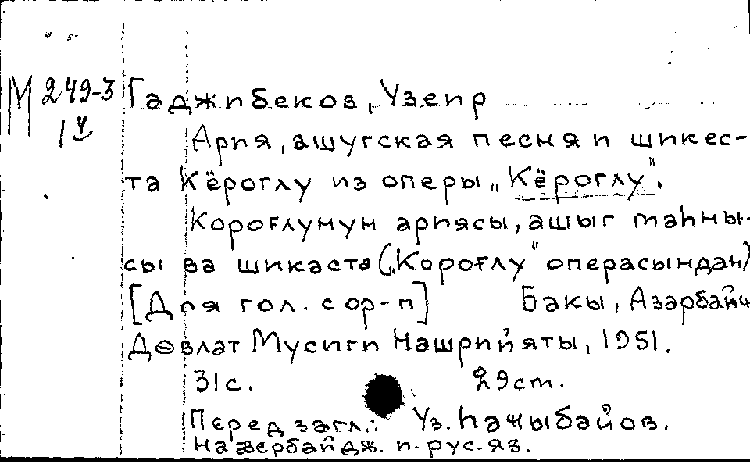 М 249-3
1 4
Гаджибеков, Узеир
Ария, ашугская песня и шикес-
та Кёроглу из оперы „Кёроглу".
Короғлунун арпясы, ашыг маһны-
сы ва шикаста („Короғлу" операсындан)
[Для гол. с ор-п] Бакы, Азәрбайҹ
Дөвлат Мусиги Нашрийяты, 1951.
31 с. 29 см.
Перед загл.: Уз. Һаҹыбайов.
На азербайдж. п. рус. яз.